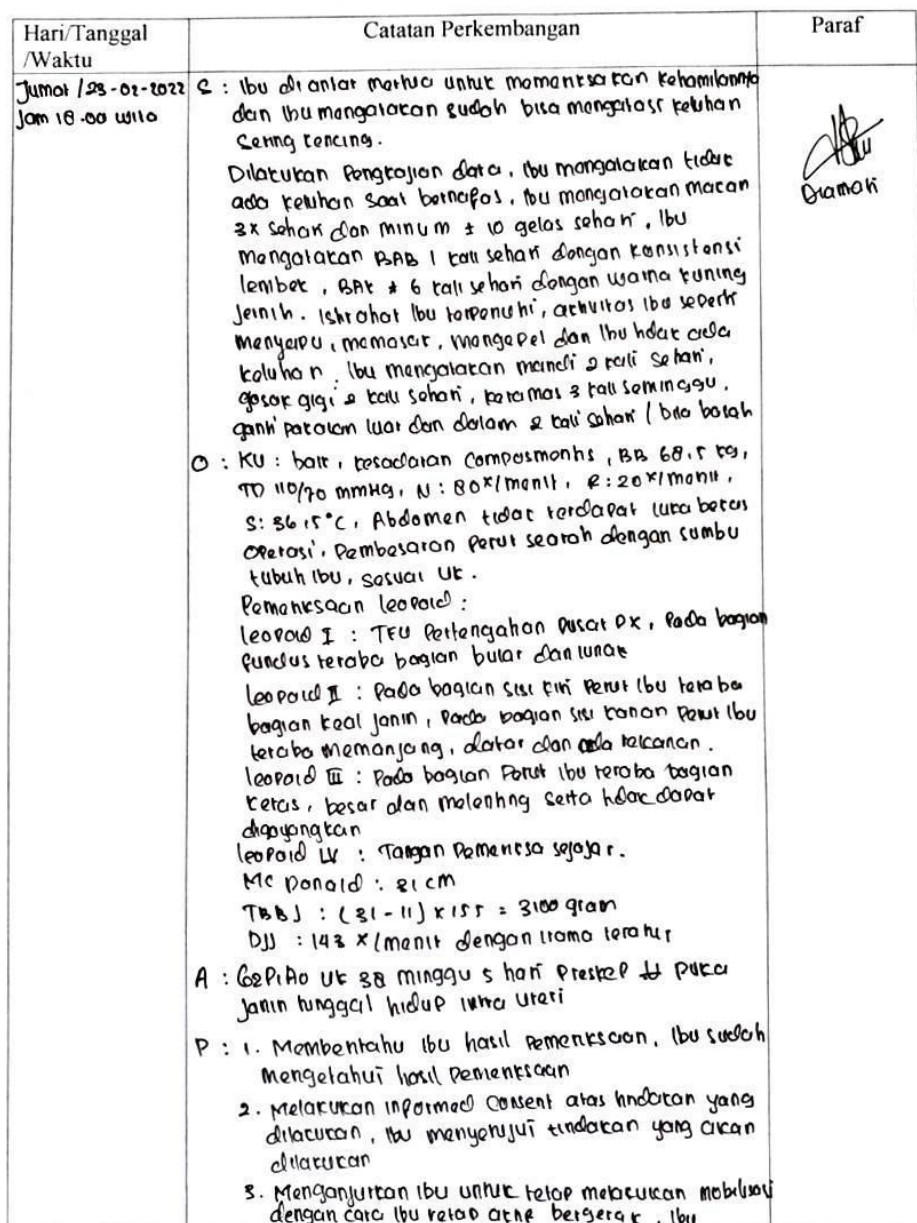 Hari/Tanggal
/Waktu
Catatan Perkembangan
Paraf
Jumat / 23-02-2022
Jam 18.00 wita
S : Ibu diantar mertua untuk memeriksakan kehamilannya
dan Ibu mengatakan sudah bisa mengatasi keluhan
sering kencing.
Dilakukan Pengkajian data, Ibu mengatakan tidak
ada keluhan saat bernafas, Ibu mengatakan makan
3x sehari dan minum ± 10 gelas sehari, Ibu
mengatakan BAB 1 kali sehari dengan konsistensi
lembek, BAK ± 6 kali sehari dengan warna kuning
jernih. Istirahat Ibu terpenuhi, aktivitas Ibu seperti
menyapu, memasak, mengepel dan Ibu tidak ada
keluhan. Ibu mengatakan mandi 2 kali sehari,
gosok gigi 2 kali sehari, keramas 3 kali seminggu,
ganti pakaian luar dan dalam 2 kali sehari / bila basah
Diamati
O : KU : baik, kesadaran composmentis, BB 68,5 kg,
TD 110/70 mmHg, N : 80x/menit, R : 20x/menit,
S: 36,5°C, Abdomen tidak terdapat luka bekas
operasi, Pembesaran Perut searah dengan sumbu
tubuh Ibu, sesuai UK.
Pemeriksaan leopold :
leopold I : TFU Pertengahan Pusat PX, Pada bagian
fundus teraba bagian bulat dan lunak
leopold II : Pada bagian sisi kiri Perut Ibu teraba
bagian kecil janin, Pada bagian sisi kanan Perut Ibu
teraba memanjang, datar dan ada tekanan.
leopold III : Pada bagian Perut Ibu teraba bagian
keras, besar dan melenting serta tidak dapat
digoyangkan
leopold IV : Tangan Pemeriksa sejajar.
Mc Donald : 31 cm
TBBJ : (31-11) x 155 = 3100 gram
DJJ : 143 x/menit dengan irama teratur
A : G2P1A0 UK 38 minggu 5 hari Preskep puka
janin tunggal hidup intra uteri
P : 1. Memberitahu Ibu hasil pemeriksaan, Ibu sudah
mengetahui hasil pemeriksaan
2. Melakukan informed consent atas tindakan yang
dilakukan, Ibu menyetujui tindakan yang akan
dilakukan
3. Menganjurkan Ibu untuk tetap melakukan mobilisasi
dengan cara Ibu tetap aktif bergerak, Ibu